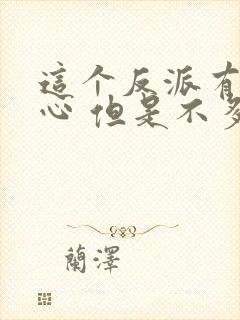 這个反派有
心 但是不多
蘭澤